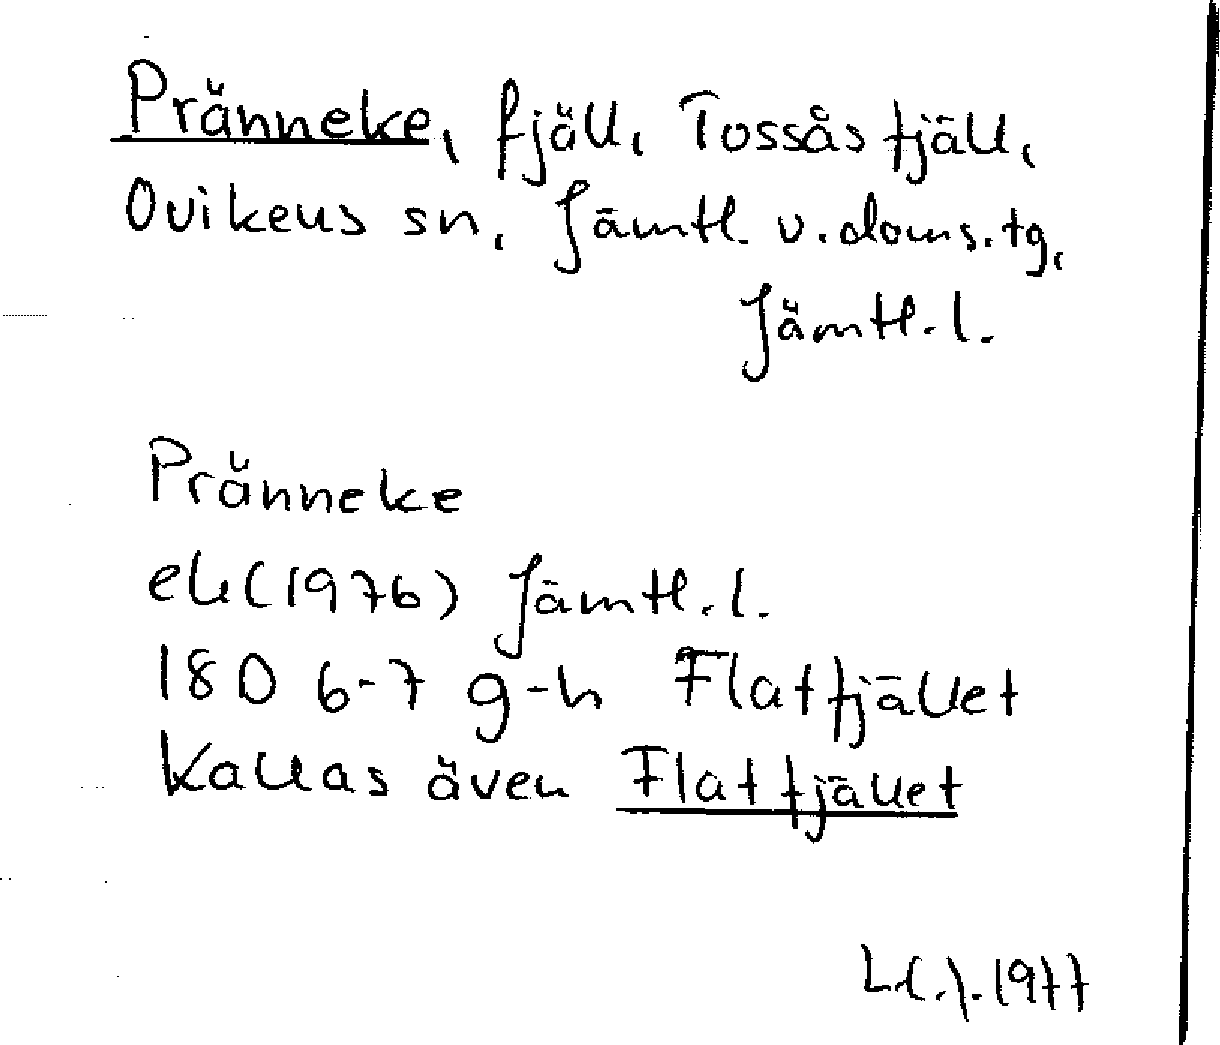 Pränneke, fjäll, Tossåsfjäll,
Ovikens sn, Jämtl. v. doms. tg,
Jämtl. l.
Pränneke
ek (1976) Jämtl. l.
18D 6-7 g-h Flatfjället
Kallas även Flatfjället
1977